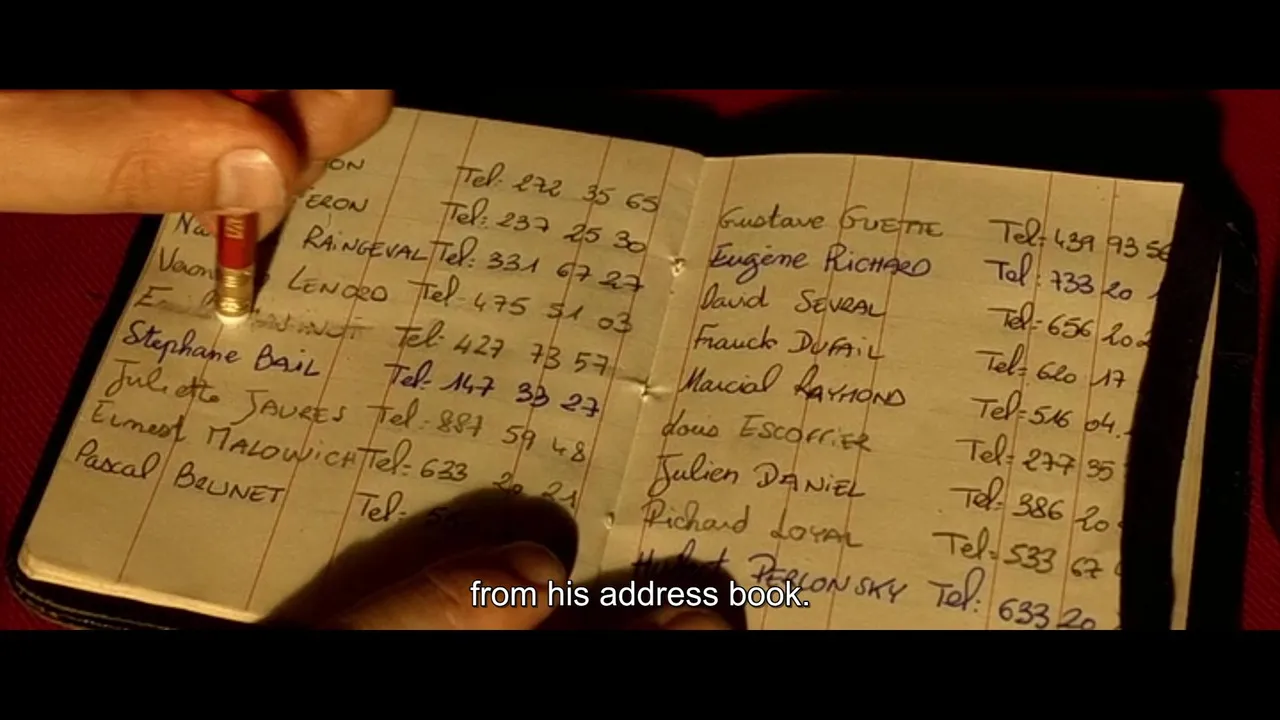 ON Tel: 272 35 65
ERON Tel: 237 25 30
Na RAINGEVAL Tel: 331 67 27
LENORD Tel: 475 51 03
Tel: 427 73 57
Stephane BAIL Tel: 147 33 27
Juliette JAURES Tel: 887 59 48
Ernest MALOWICH Tel: 633 20 21
Pascal BRUNET Tel:
Gustave GUETTE Tel: 439 93 56
Eugène RICHARD Tel: 733 20
David SEVRAL Tel: 656 20
Franck DUFAIL Tel: 620 17
Marcial RAYMOND Tel: 516 04
Lous ESCOFFIER Tel: 277 35
Julien DANIEL Tel: 386 20
Richard LOYAL Tel: 533 67
PERLONSKY Tel: 633 20
from his address book.